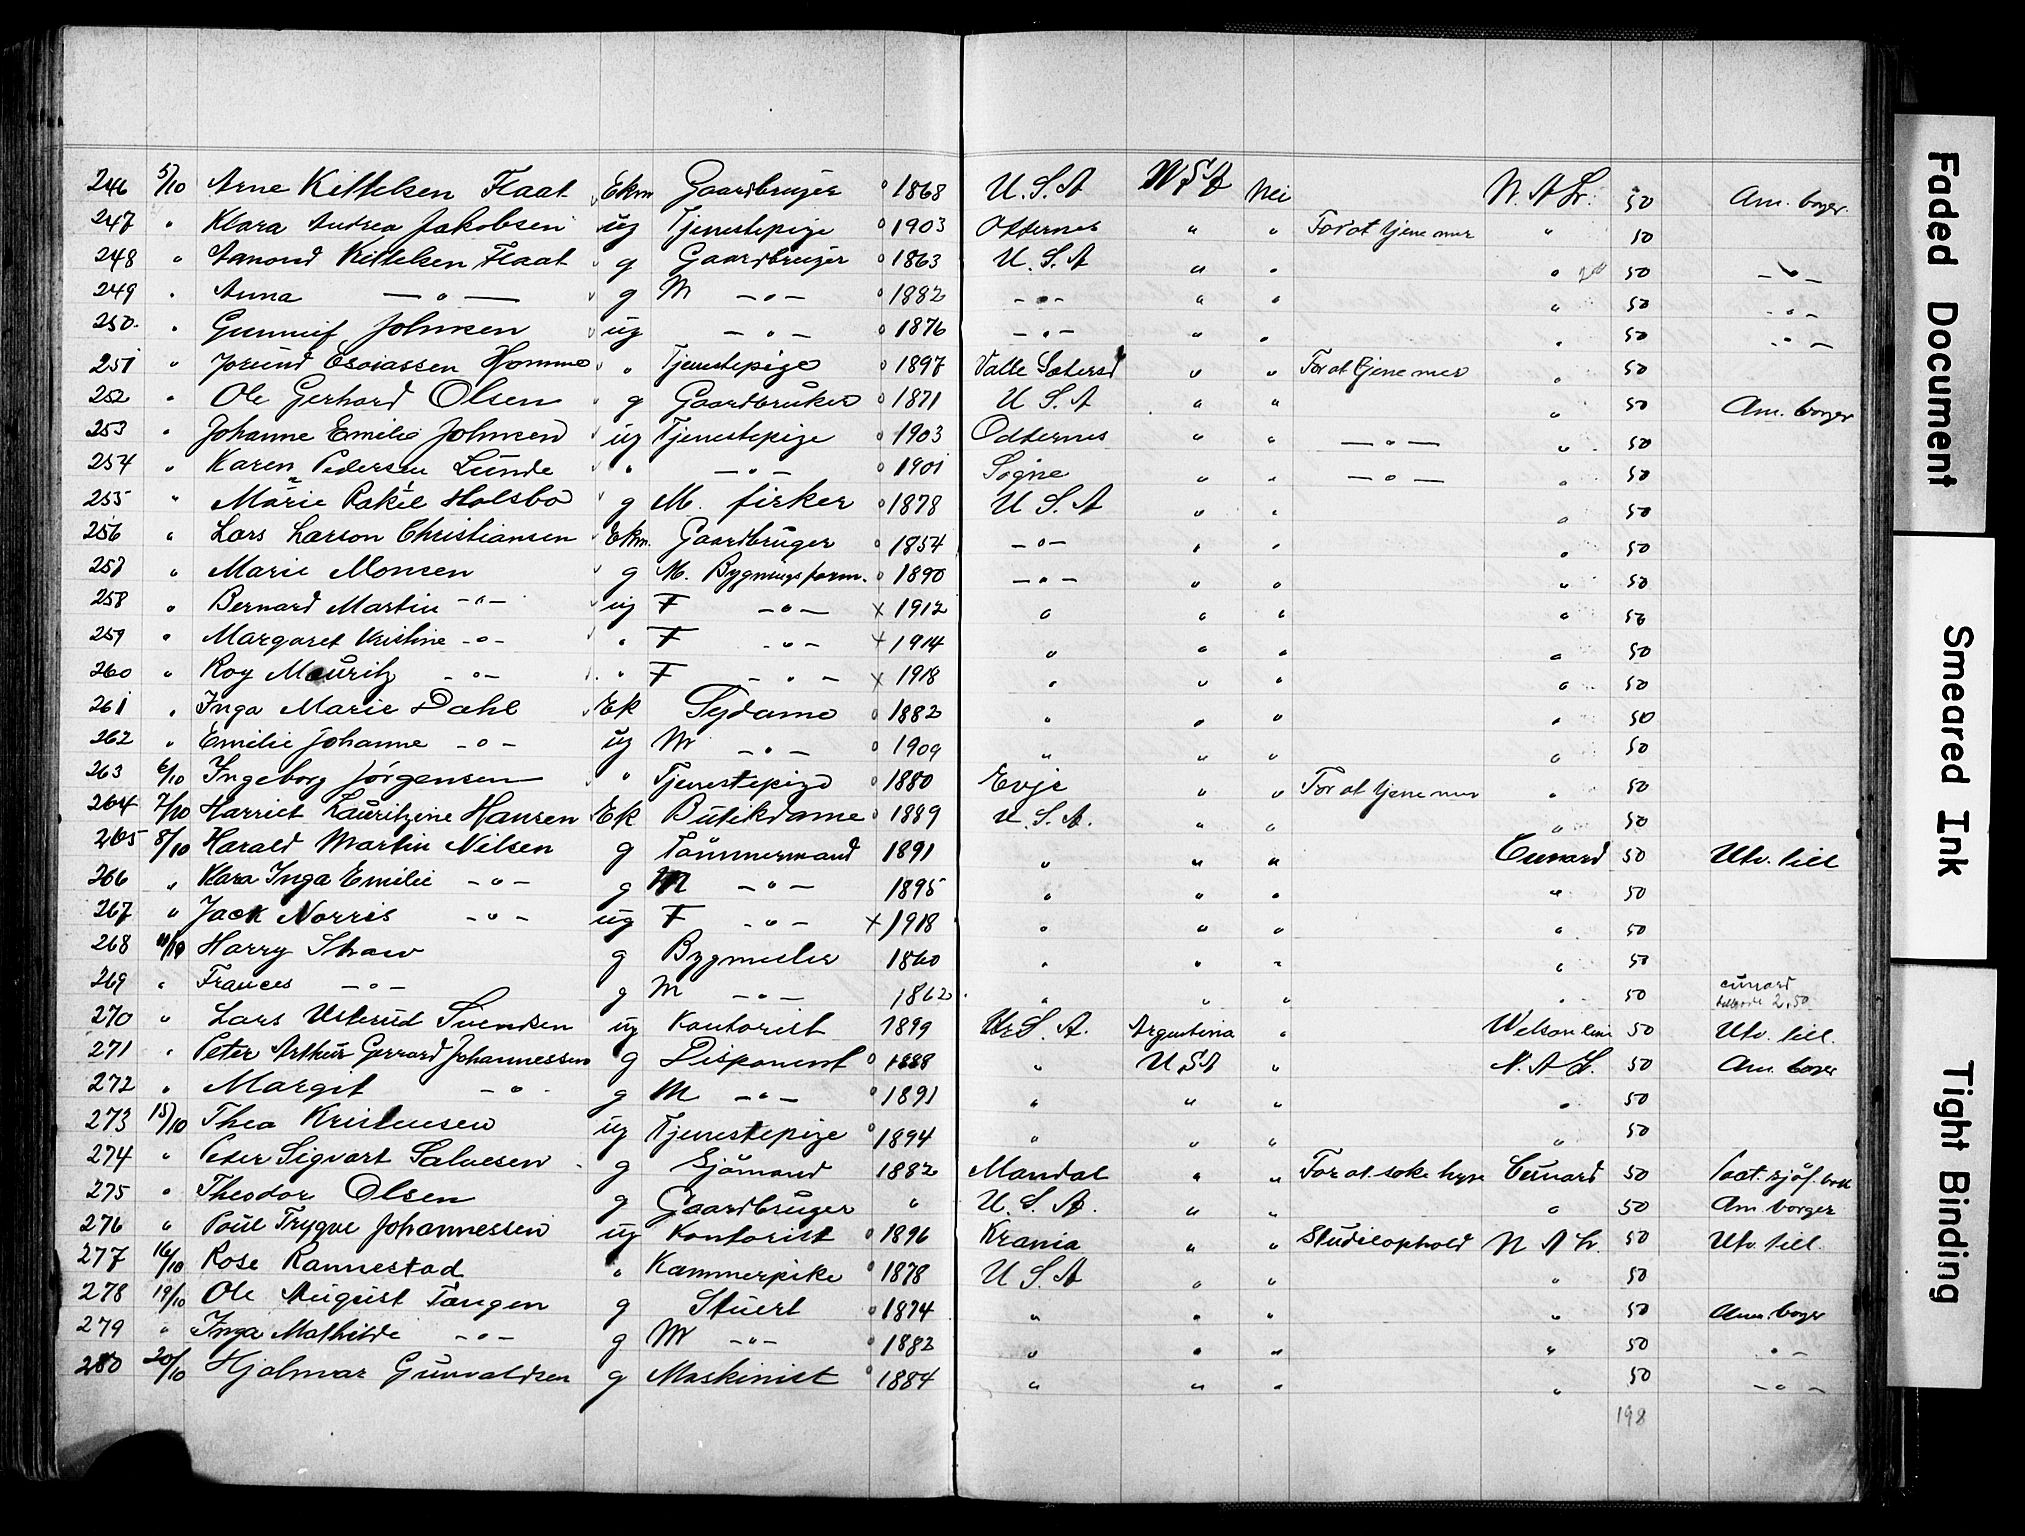 246 5/10 Arne Kittelsen Flaat Ekm Gaardbruger 1868 U.S.A U.S.A Nei N.A.L. 50 Am. borger.
247 " Klara Andrea Jakobsen ug Tjenestepige 1903 Oddernes " " For at tjene mer " 50
248 " Aamond Kittelsen Flaat g Gaardbruger 1863 U.S.A " " " 50 — " —
249 " Anna — " — g M — " — 1882 — " — " " " 50 — " —
250. " Gunneif Johnsen ug — " — 1876 — " — " " " 50 — " —
251 " Jorund Esaiassen Homme " Tjenestepige 1897 Valle Sætersd " " For at tjene mer " 50
252 " Ole Gerhard Olsen g Gaardbruker 1871 U.S.A " " " 50 Am. borger
253 " Johanne Emilie Johnsen ug Tjenestepige 1903 Oddernes " " — " — " 50
254 " Karen Pedersen Lunde " — " — 1901 Søgne " " — " — " 50
255 " Marie Rakel Holsbø g M. firker 1878 U.S.A " " " 50
256 " Lars Larson Christiansen Ekm. Gaardbruger 1854 — " — " " " 50
257 " Marie Monsen g M. Bygningsform. 1890 — " — " " " 50
258 " Bernard Martin — " — ug F — " — x 1912 " " " " 50
259 " Margaret Kristine — " — " F — " — x 1914 " " " " 50
260 " Roy Mauritz — " — " F — " — x 1918 " " " " 50
261 " Inga Marie Dahl Ek Sydame 1882 " " " " 50
262 " Emilie Johanne — " — ug M — " — 1909 " " " " 50
263 6/10 Ingeborg Jørgensen " Tjenestepige 1880 Evje " " For at tjene mer " 50
264 7/10 Harriet Lauritzine Hansen Ek Butikdame 1889 U.S.A. " " " 50
265 8/10 Harald Martin Nilsen g Tømmermand 1891 " " " Cunard 50 Utv. till
266 " Klara Inga Emilie — " — g M — " — 1895 " " " " 50
267 " Jack Norris — " — ug F — " — x 1918 " " " " 50
268 11/10 Harry Shaw g Bygmester 1860 " " " " 50
269 " Frances — " — g M — " — 1862 " " " " 50 cunard 2,50
270 " Lars Usterud Svendsen ug Kontorist 1899 U.S.A. Argentina " Wilson line 50 Utv. till.
271 " Peter Arthur Gerrard Johannessen g Disponent 1888 " U.S.A " N.A.L. 50 Am. borger
272 " Margit — " — g M — " — 1891 " " " " 50
273 15/10 Thea Kristensen ug Tjenestepige 1894 " " " " 50
274 " Peter Sigvart Salvesen g Sjømand 1882 Mandal " " For at søke hyre Cunard 50
275 " Theodor Olsen g Gaardbruger " U.S.A. " " " 50 Am. borger
276 " Paul Trygve Johannessen ug Kontorist 1896 Krania " " Studieophold N.A.L. 50 Utv. till.
277 16/10 Rose Rannestad " Kammerpike 1878 U.S.A " " " 50
278 19/10 Ole August Tangen g Stuert 1874 " " " " 50 Am. borger
279 " Inga Mathilde — " — g M — " — 1882 " " " " 50 " —
280 20/10 Hjalmar Gunvaldsen g Maskinist 1884 " " " " 50 — " —
198
Faded Document
Smeared Ink
Tight Binding